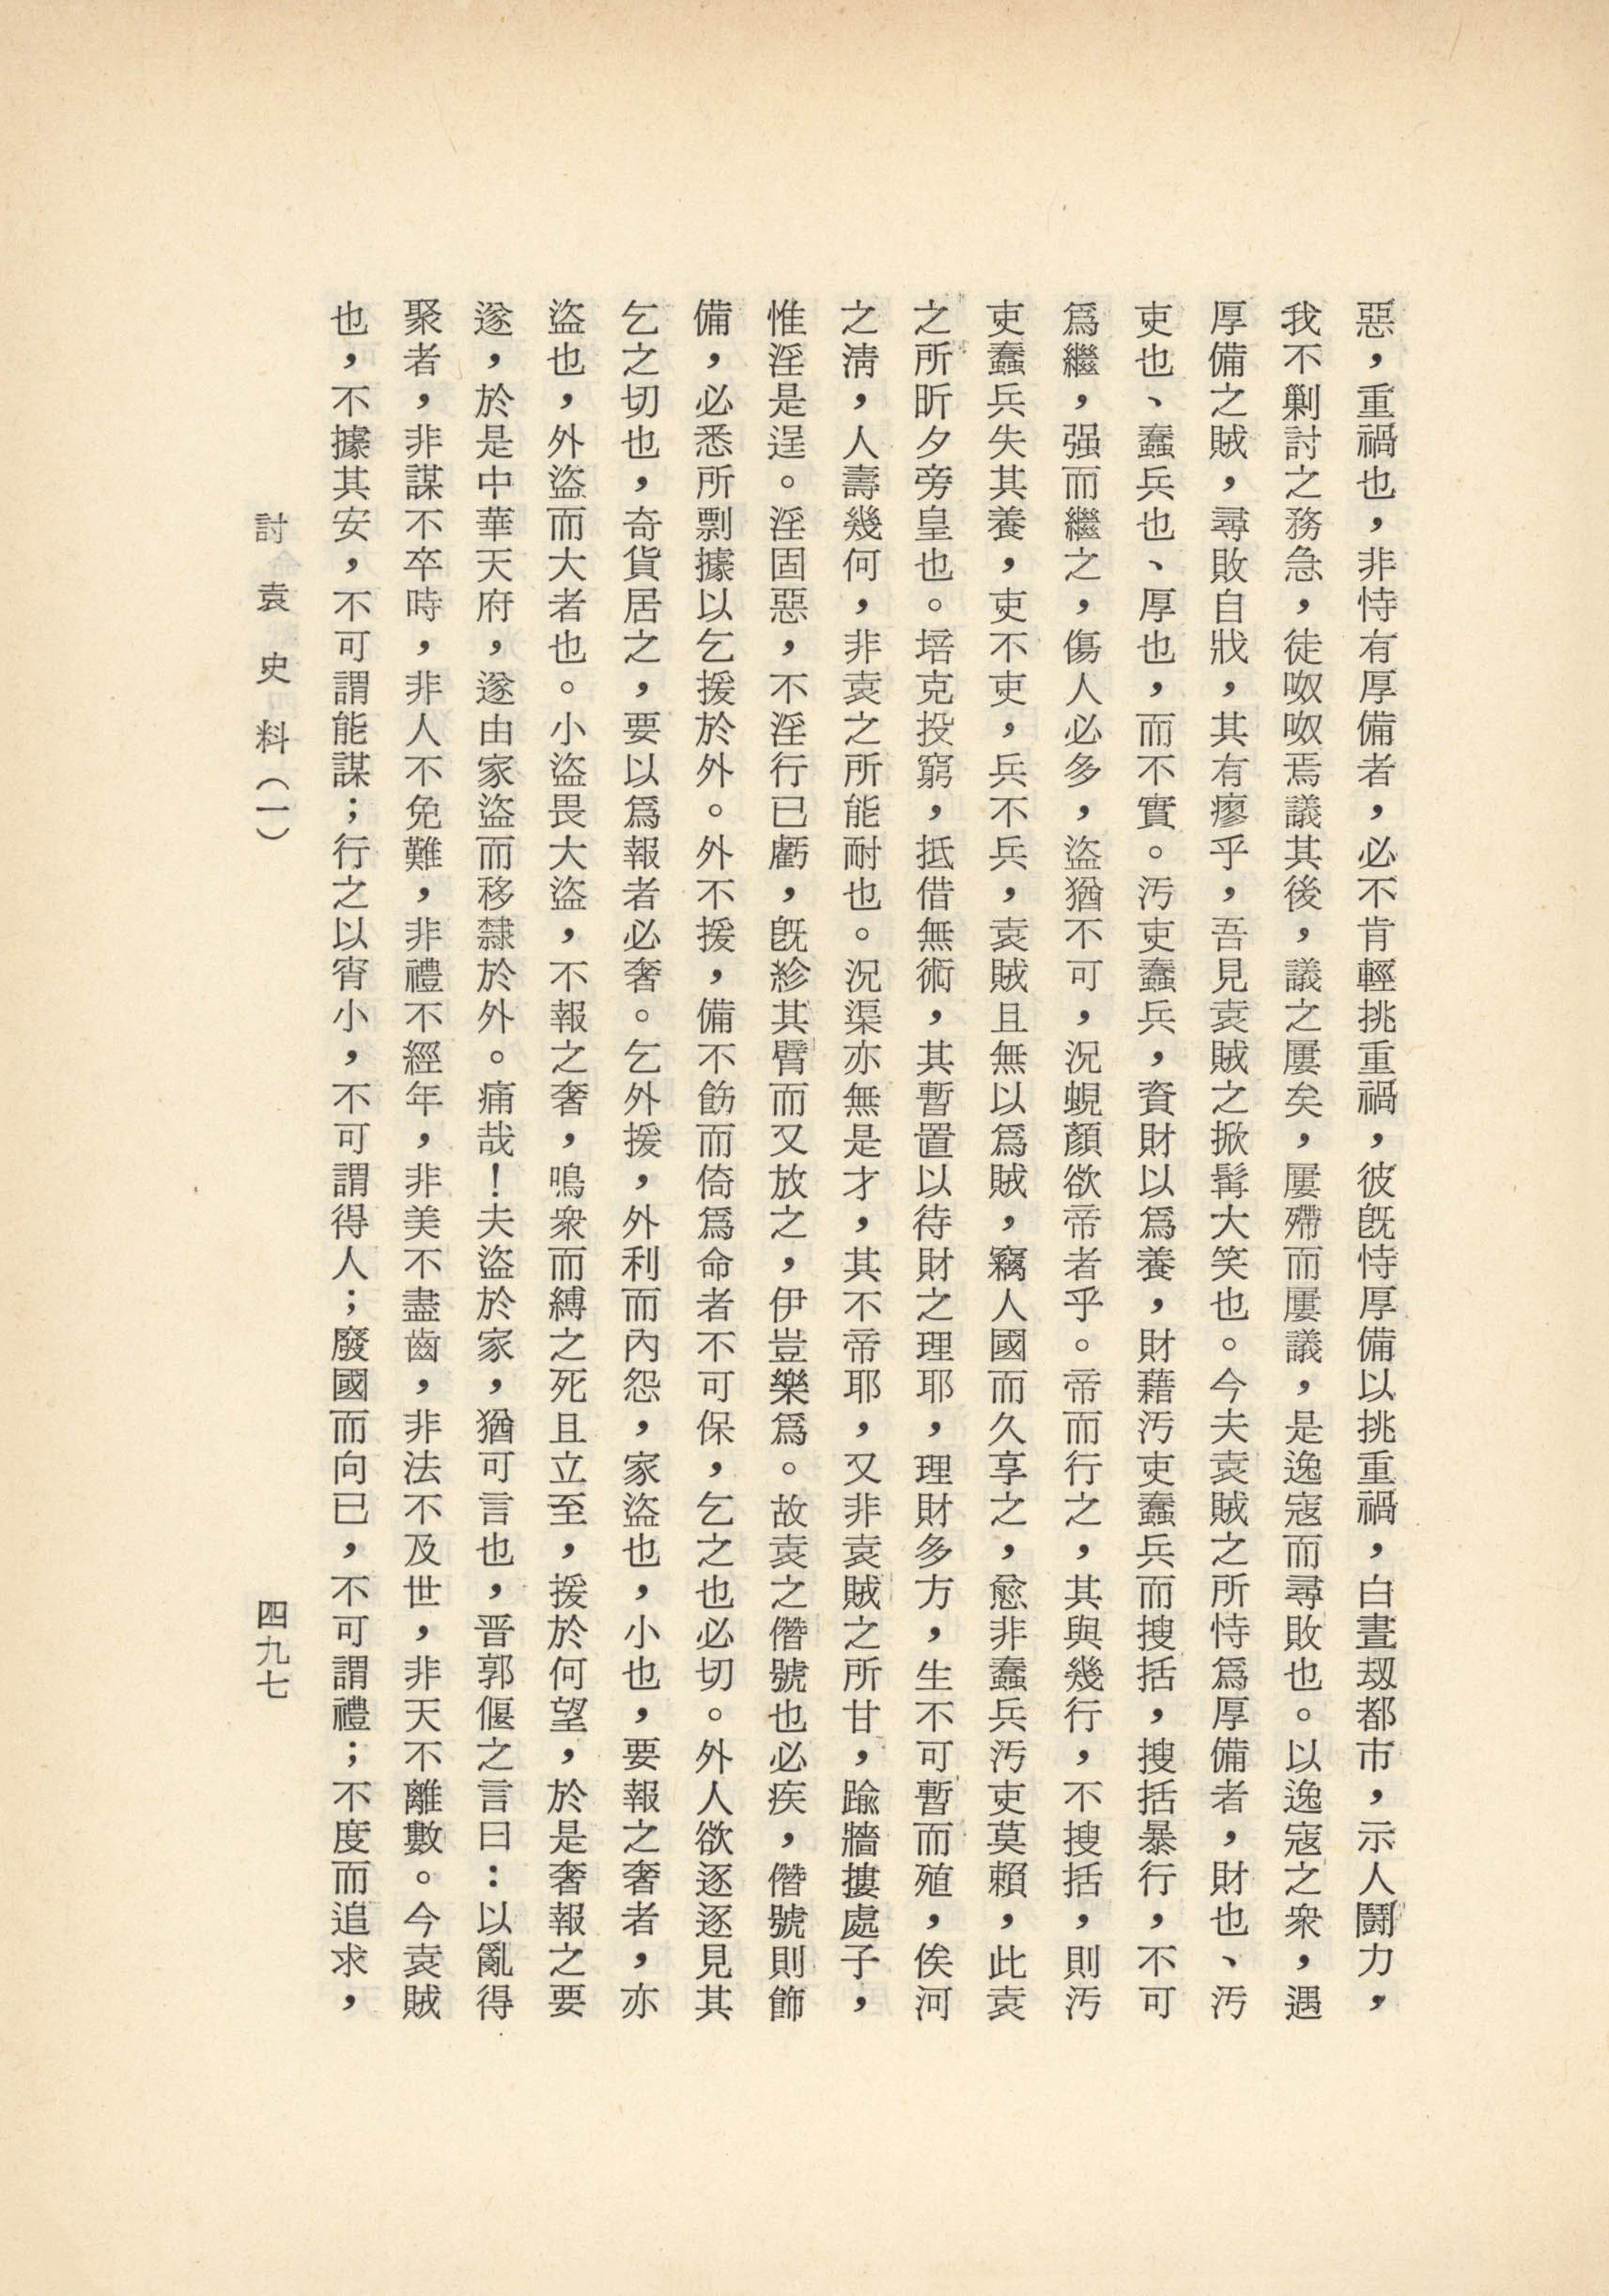 惡，重禍也，非恃有厚備者，必不肯輕挑重禍，彼既恃厚備以挑重禍，白晝刼都市，示人鬪力，
我不剿討之務急，徒呶呶焉議其後，議之屢矣，屢殢而屢議，是逸寇而尋敗也。以逸寇之衆，遇
厚備之賊，尋敗自戕，其有瘳乎，吾見袁賊之掀髯大笑也。今夫袁賊之所恃爲厚備者，財也、汚
吏也、蠧兵也、厚也，而不實。汚吏蠧兵，資財以爲養，財藉汚吏蠧兵而搜括，搜括暴行，不可
爲繼，强而繼之，傷人必多，盜猶不可，況蜆顏欲帝者乎。帝而行之，其與幾行，不搜括，則汚
吏蠧兵失其養，吏不吏，兵不兵，袁賊且無以爲賊，竊人國而久享之，愈非蠧兵汚吏莫賴，此袁
之所昕夕旁皇也。培克投窮，抵借無術，其暫置以待財之理耶，理財多方，生不可暫而殖，俟河
之淸，人壽幾何，非袁之所能耐也。況渠亦無是才，其不帝耶，又非袁賊之所甘，踰牆摟處子，
惟淫是逞。淫固惡，不淫行已虧，旣紾其臂而又放之，伊豈樂爲。故袁之僭號也必疾，僭號則飾
備，必悉所剽據以乞援於外。外不援，備不飭而倚爲命者不可保，乞之也必切。外人欲逐逐見其
乞之切也，奇貨居之，要以爲報者必奢。乞外援，外利而內怨，家盜也，小也，要報之奢者，亦
盜也，外盜而大者也。小盜畏大盜，不報之奢，鳴衆而縛之死且立至，援於何望，於是奢報之要
遂，於是中華天府，遂由家盜而移隸於外。痛哉！夫盜於家，猶可言也，晋郭偃之言曰：以亂得
聚者，非謀不卒時，非人不免難，非禮不經年，非美不盡齒，非法不及世，非天不離數。今袁賊
也，不據其安，不可謂能謀；行之以宵小，不可謂得人；廢國而向已，不可謂禮；不度而追求，
討袁史料（一）
四九七